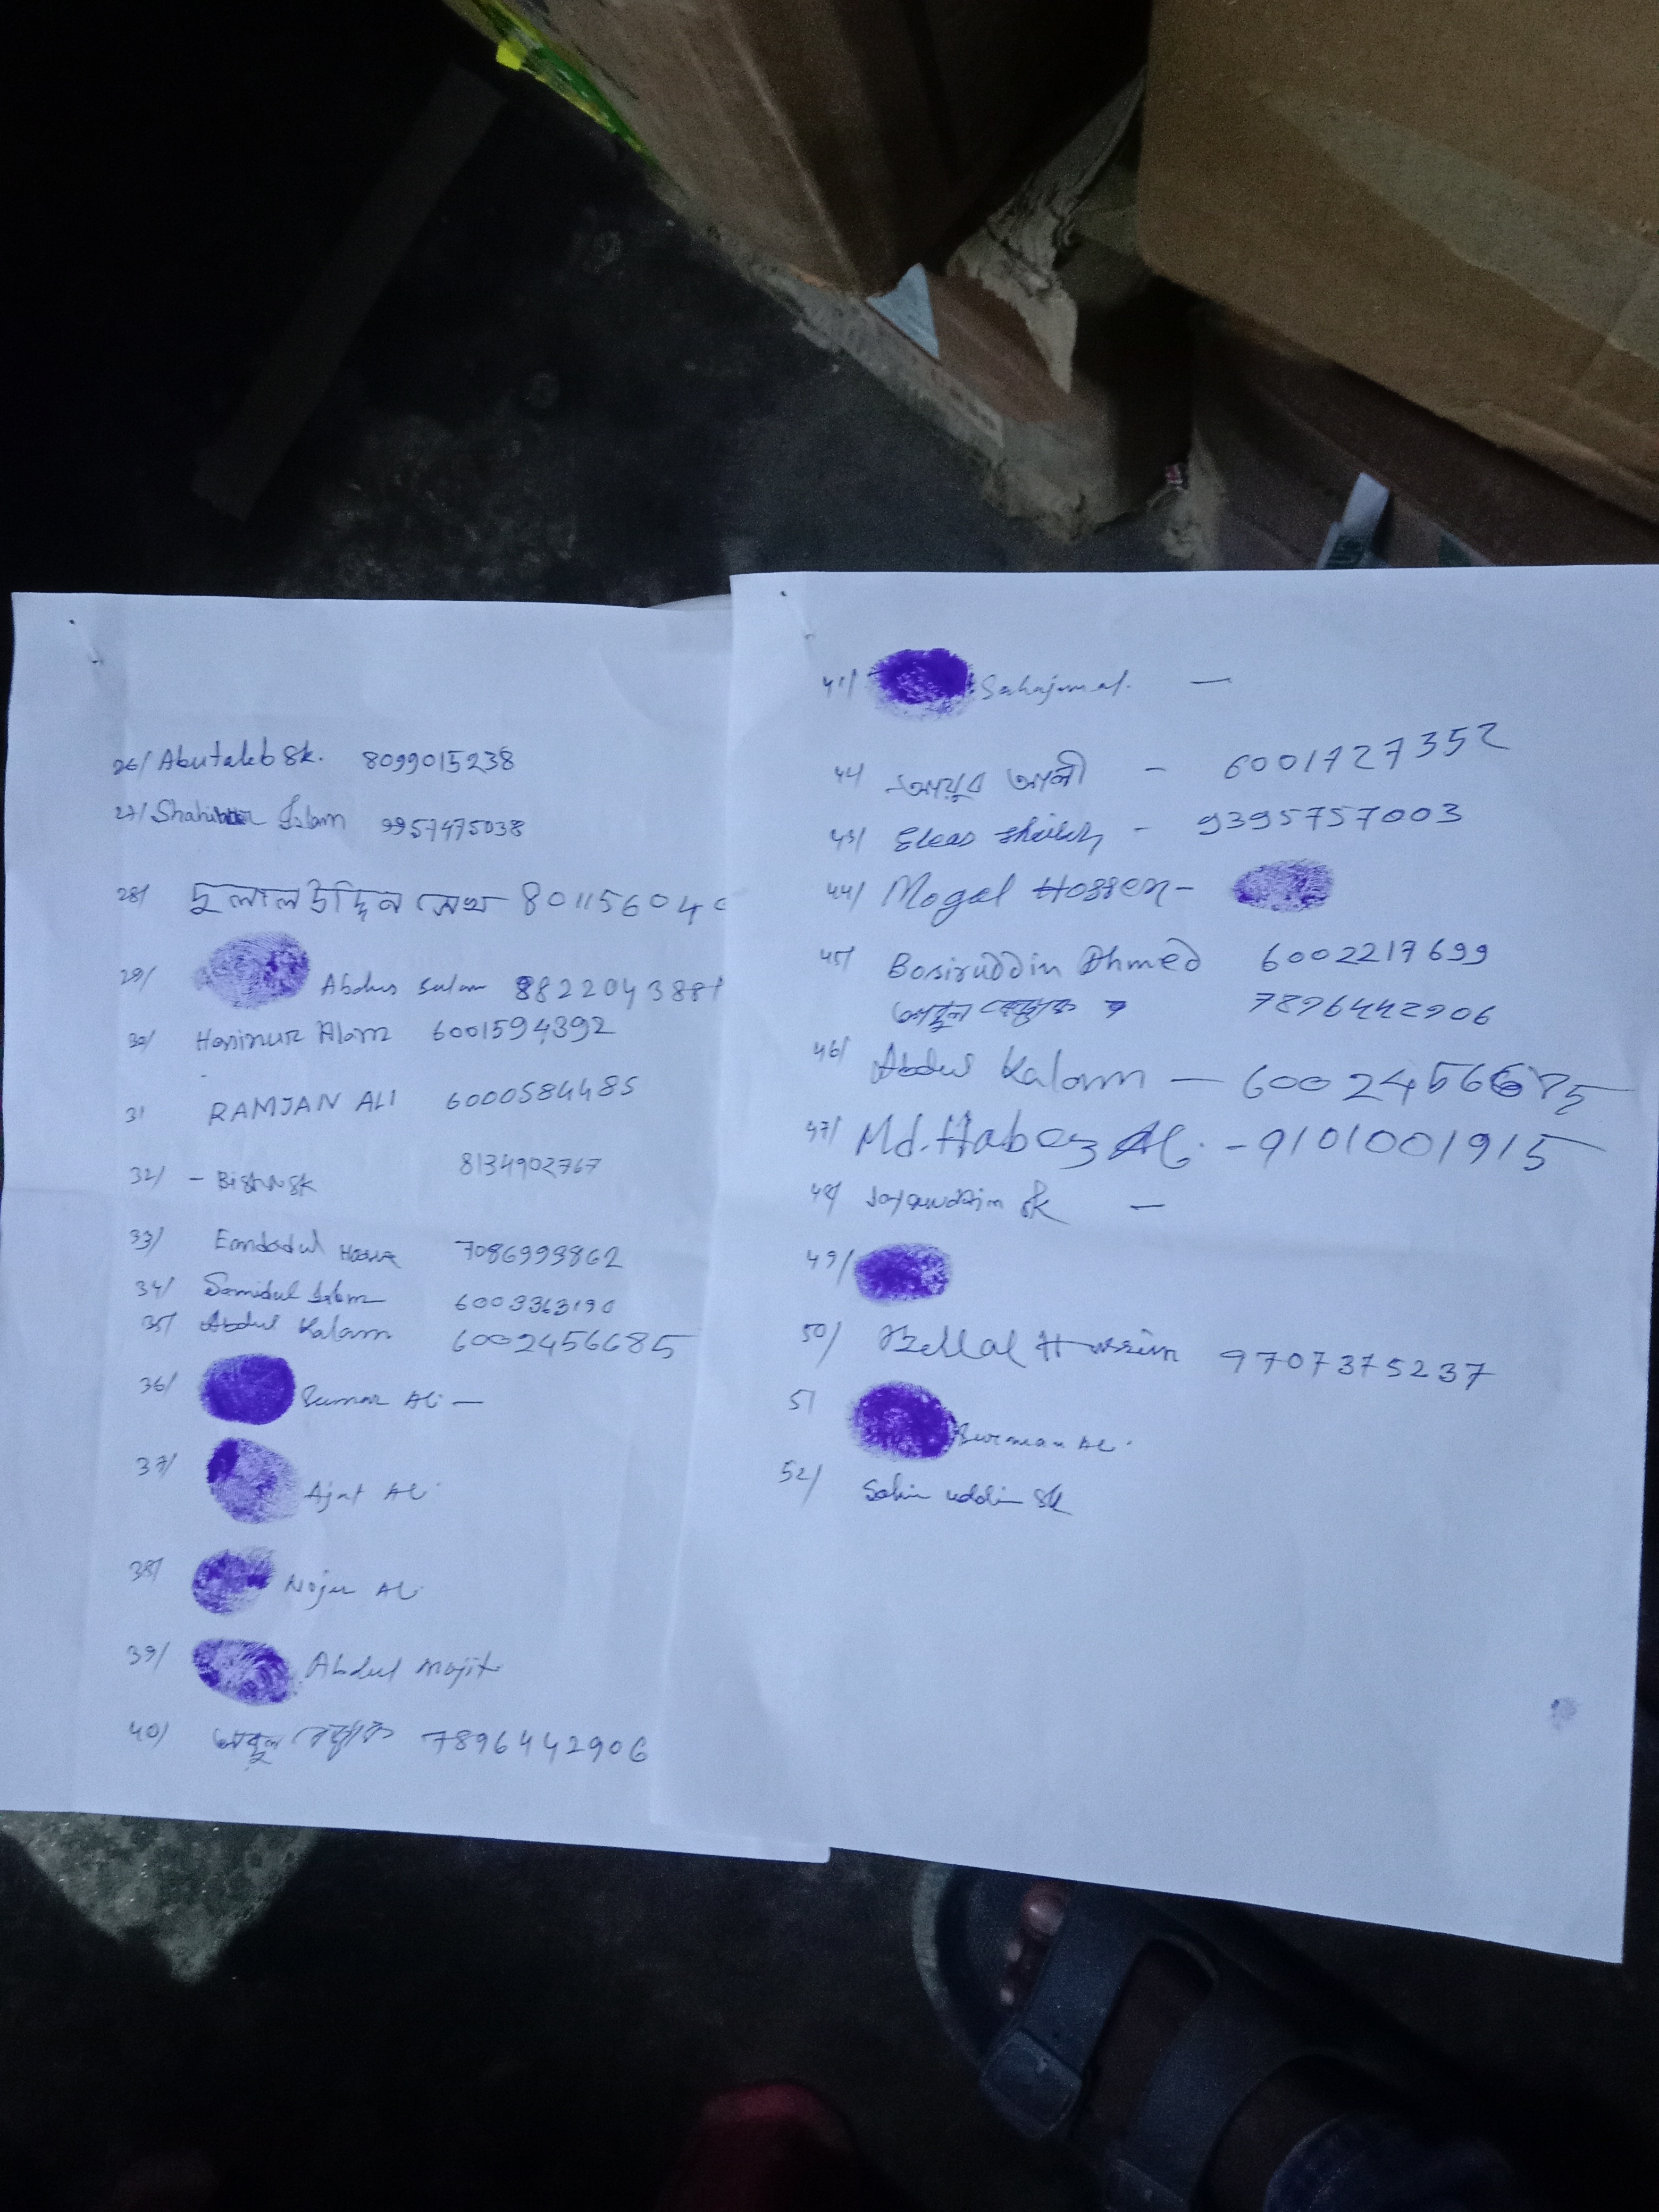 26/ Abutaleb Sk. 8099015238
27/ Islam 9957475038
28/ দুলাল উদ্দিন সেখ 801156040
29/ Abdus Salam 8822043881
30/ Hasinur Alam 6001594392
31 RAMJAN ALI 6000584485
32/ - Sk 8134902767
33/ Emdadul 7086999862
34/ Samidul Islam 6003363190
35/ Abdul Kalam 6002456685
36/ Ali —
37/ Ajat Ali
38/ Ali
39/ Abdul Majit
40/ 7896442906
41/ Sahajamal. —
44/ আয়ুব আলী - 6001727352
43/ Eleas Sheikh - 9395757003
44/ Mogal Hossen -
45/ Bosiruddin Ahmed 6002217699
7896442906
46/ Abdul Kalam — 6002456685
47/ Md. Habez Ali. - 9101001915
48/ Sk —
49/
50/ Bellal Hussain 9707375237
51 Ali.
52/ uddin Sk